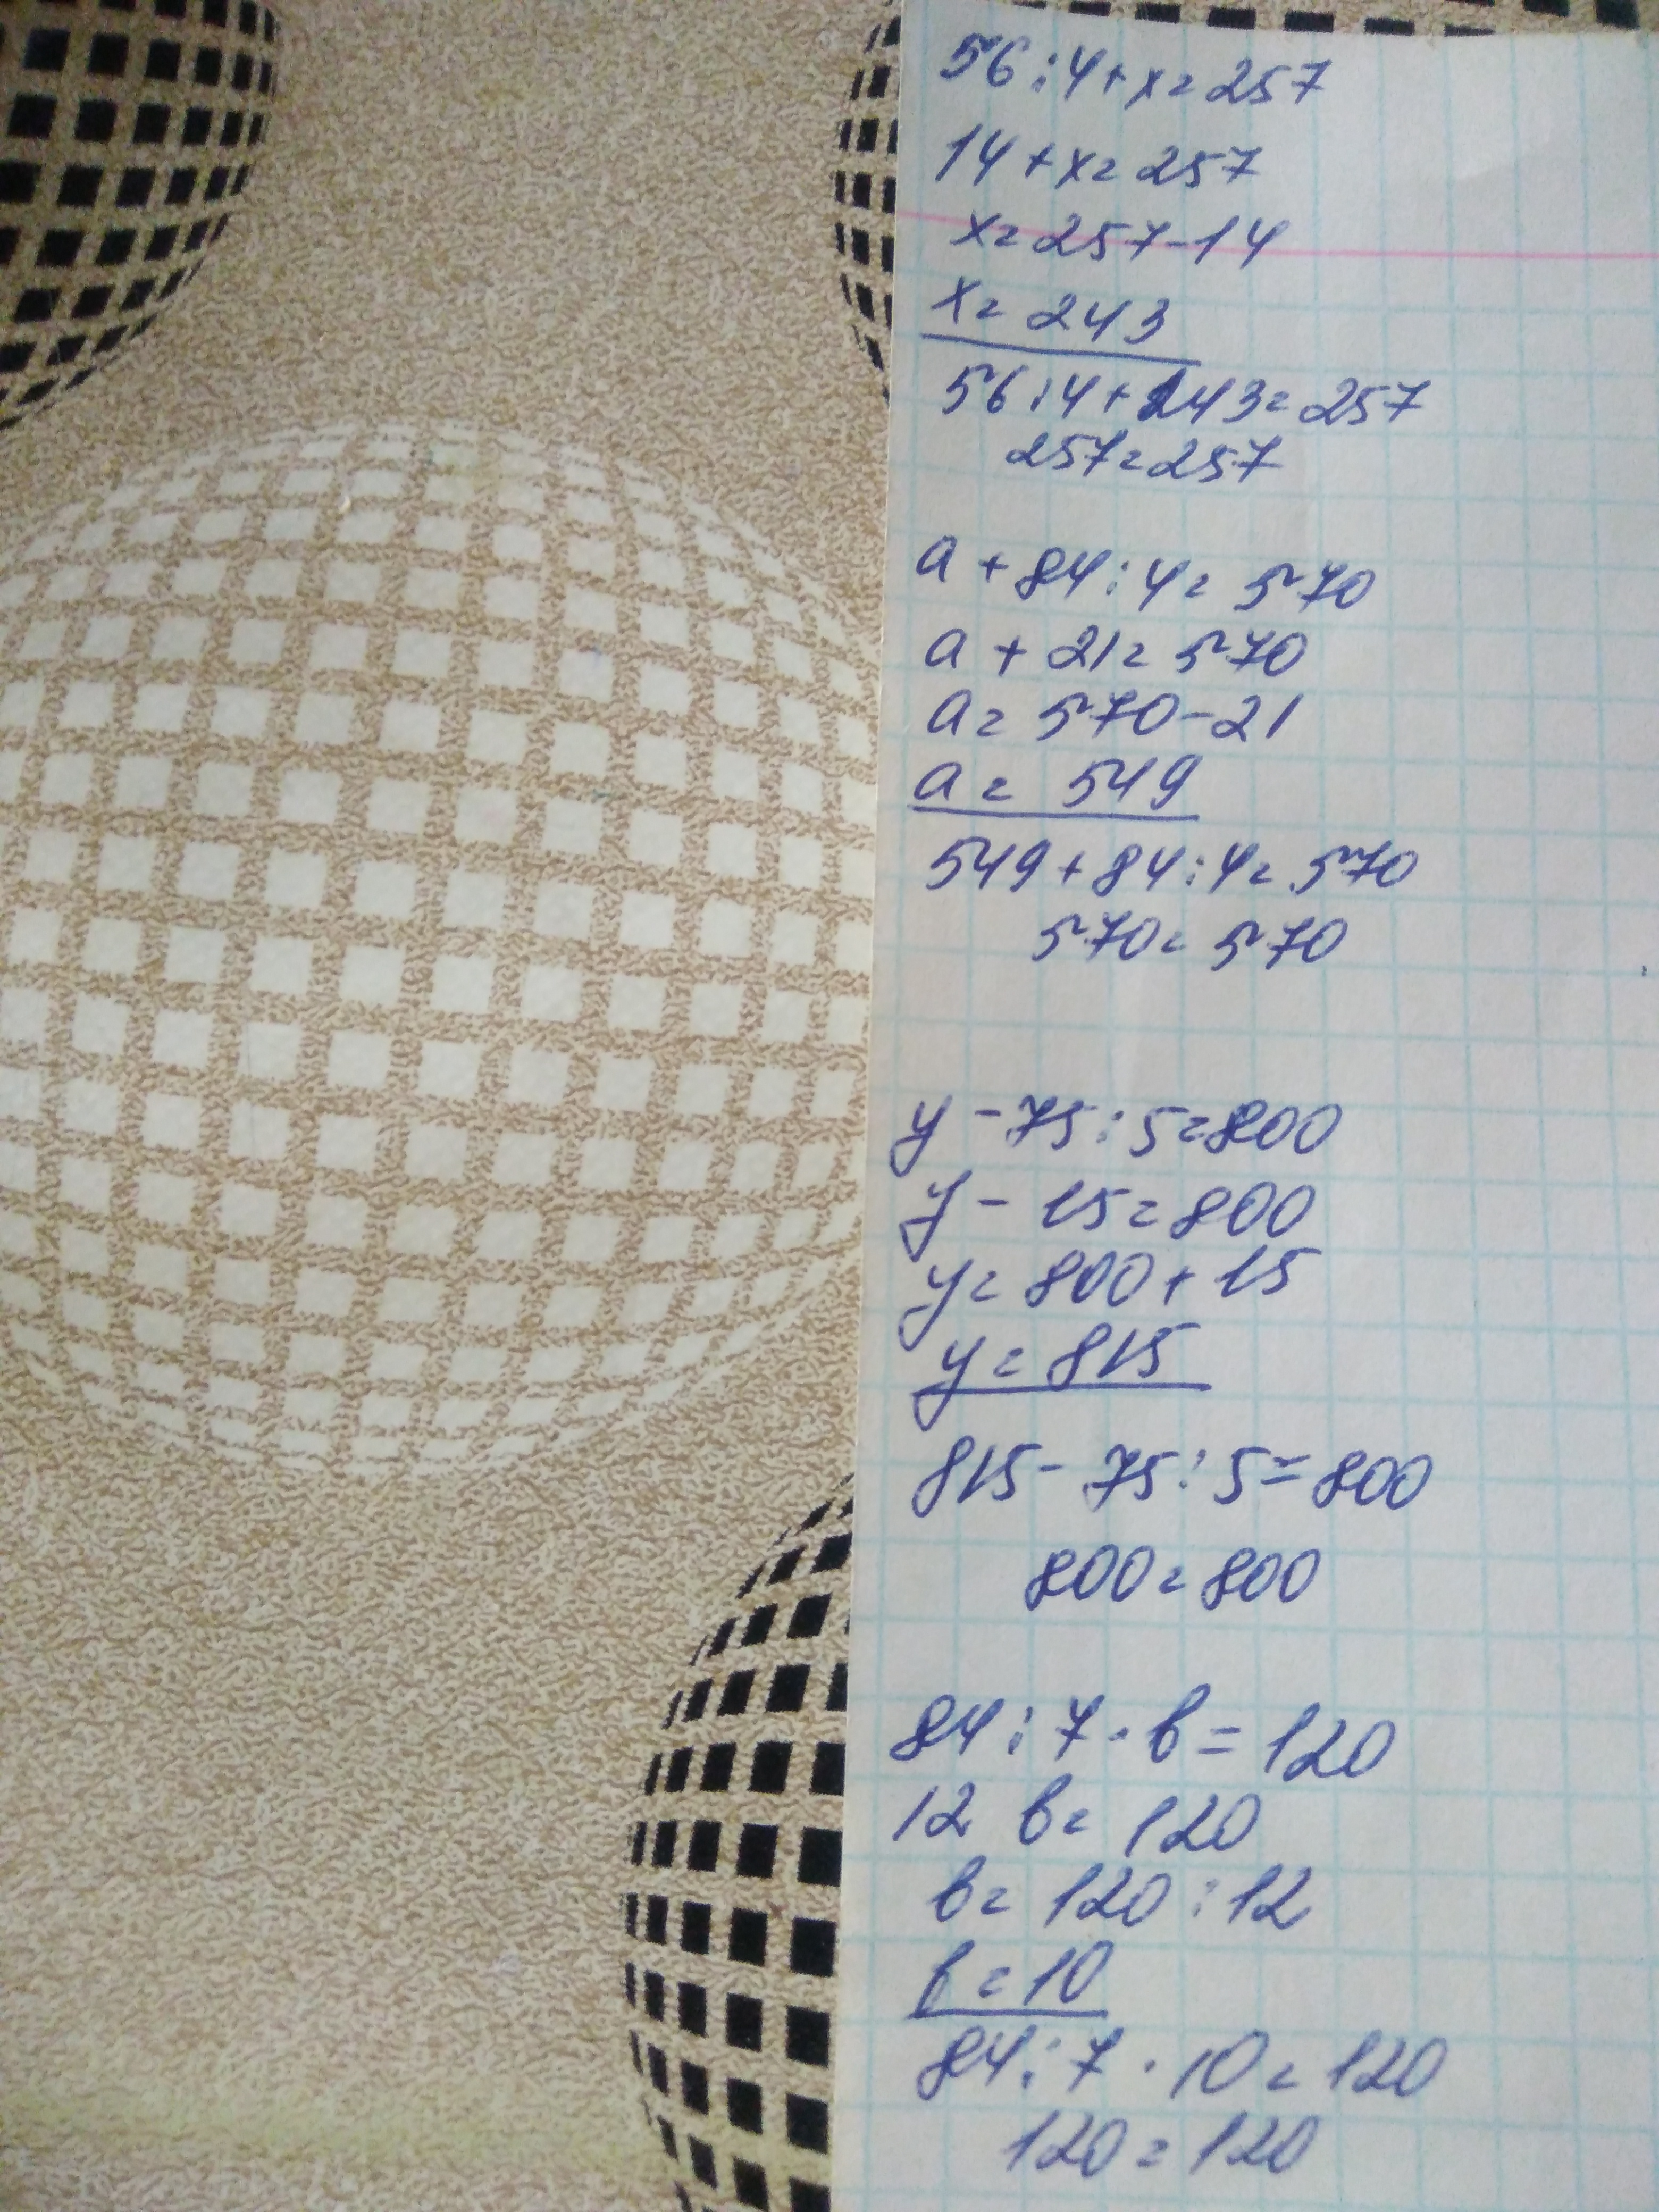 56:4+x=257
14+x=257
x=257-14
x=243
56:4+243=257
257=257
a+84:4=570
a+21=570
a=570-21
a=549
549+84:4=570
570=570
y-75:5=800
y-15=800
y=800+15
y=815
815-75:5=800
800=800
84:7·b=120
12 b=120
b=120:12
b=10
84:7·10=120
120=120